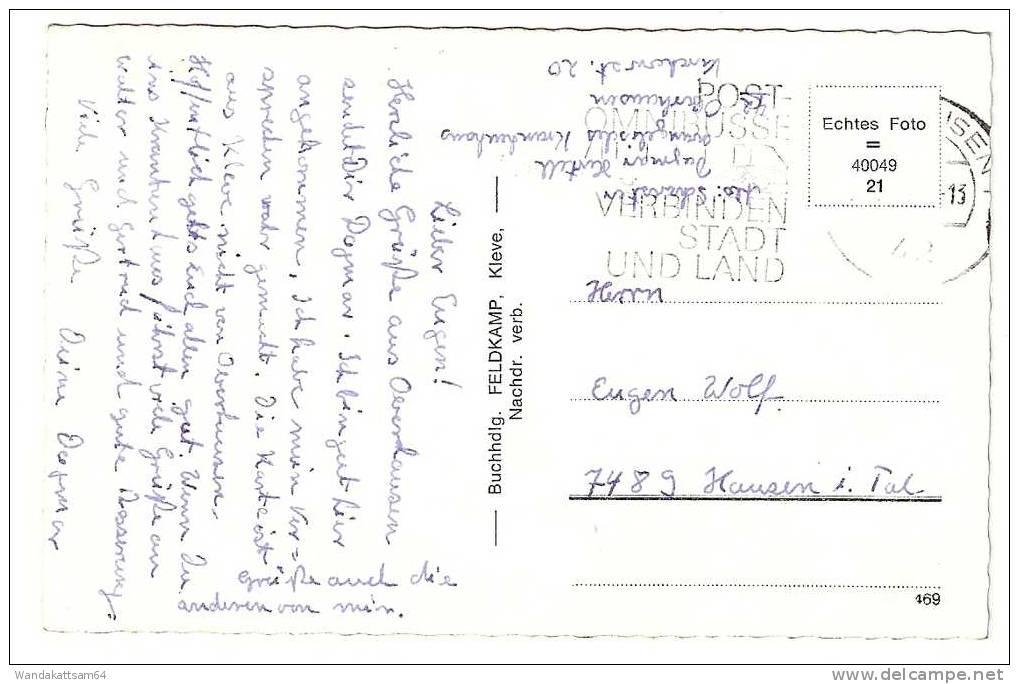 Lieber Eugen!
Herzliche Grüße aus Overhausen
sendet Dir Dagmar. Ich bin gut hier
angekommen. Ich habe mein Ver=
sprechen wahr gemacht. Die Karte ist
aus Kleve nicht von Oberhausen.
Hoffentlich gehts Euch allen gut. Wenn Du
ins Krankenhaus fährst viele Grüße an
walter und Gertrud und gute Besserung.
Viele Grüße Deine Dagmar
Grüße auch die
anderen von mir.
Buchhdlg. FELDKAMP, Kleve,
Nachdr. verb.
Dagmar
Evangelisches Krankenhaus
42 Oberhausen
Kirchenstr. 20
POST-
OMNIBUSSE
VERBINDEN
STADT
UND LAND
Echtes Foto
=
40049
21
13
42
Herrn
Eugen Wolf
7489 Hausen i. Tal
469
Wandakattsam64
delcampe.net